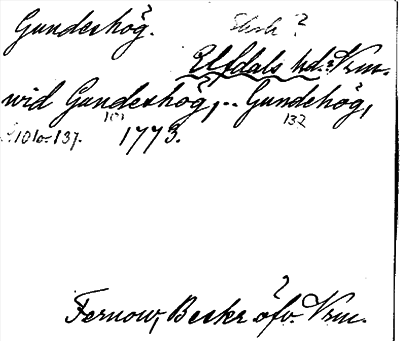 Gundeshög.
Elfdals hd. Vrm.
wid Gundeshög,.. Gundehög,
101 132
s. 101 o. 137. 1773.
Fernow, Beskr öfv. Vrm.